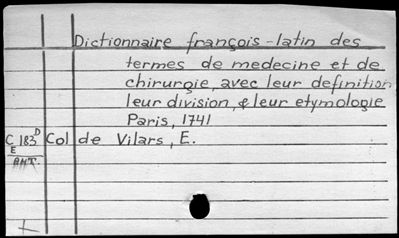 Dictionnaire françois-latin des
termes de medecine et de
chirurgie, avec leur definition
leur division, & leur etymologie
Paris, 1741
C 183D Col de Vilars, E.
E
ANT.